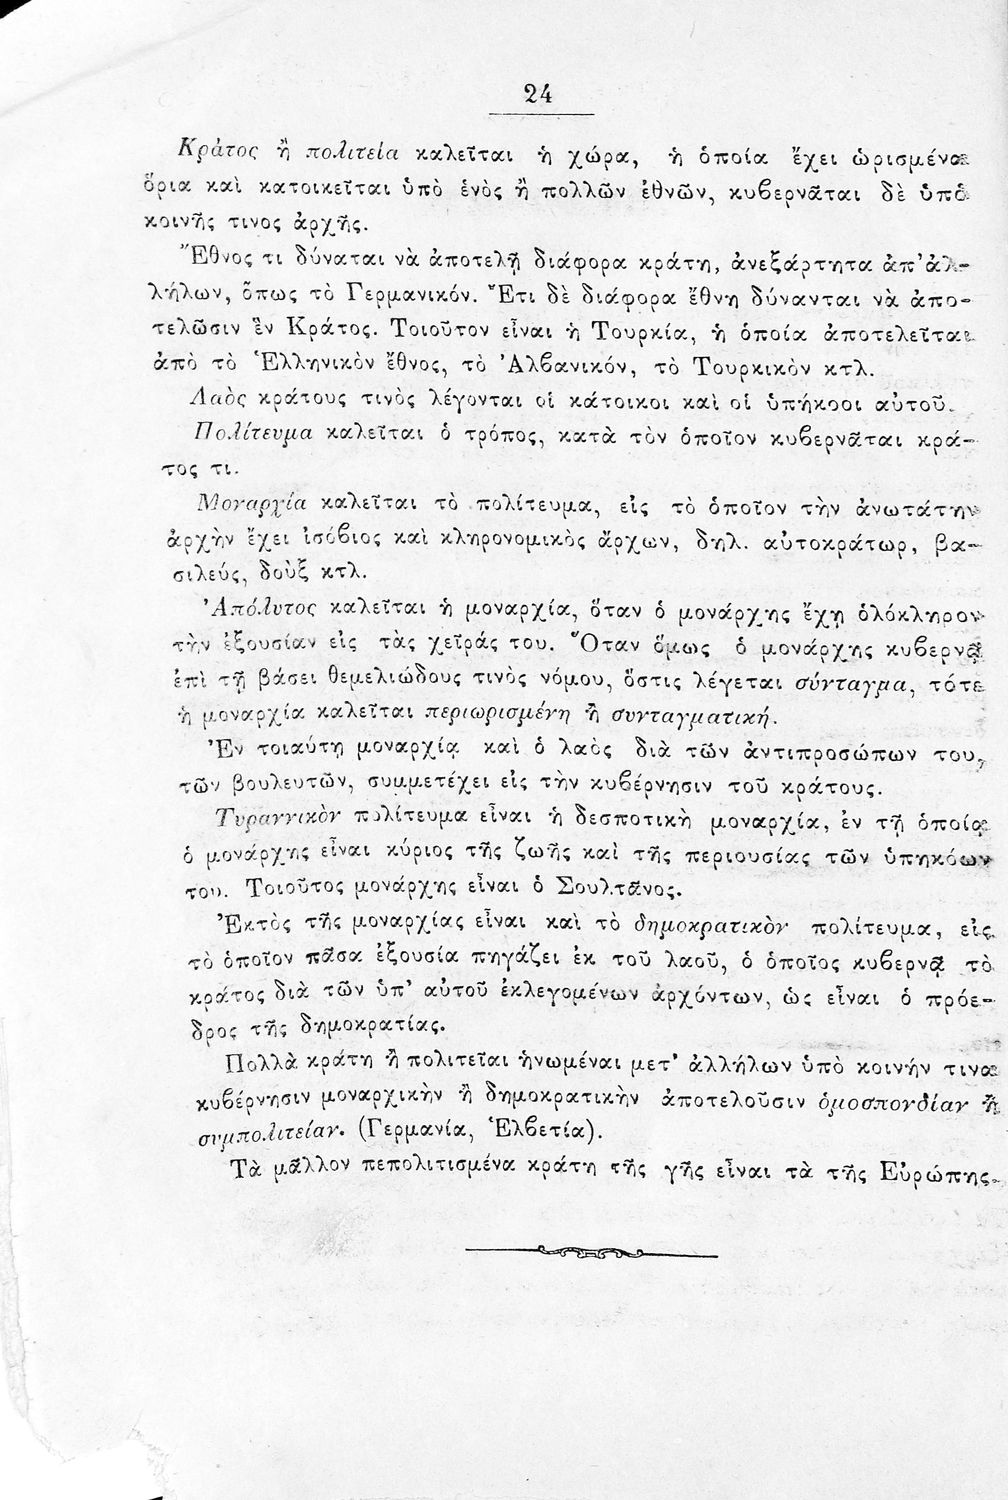 24
Κράτος ἢ πολιτεία καλεῖται ἡ χώρα, ἡ ὁποία ἔχει ὡρισμένα
ὅρια καὶ κατοικεῖται ὑπὸ ἑνὸς ἢ πολλῶν ἐθνῶν, κυβερνᾶται δὲ ὑπὸ
κοινῆς τινος ἀρχῆς.
Ἔθνος τι δύναται νὰ ἀποτελῇ διάφορα κράτη, ἀνεξάρτητα ἀπ’ ἀλ-
λήλων, ὅπως τὸ Γερμανικόν. Ἔτι δὲ διάφορα ἔθνη δύνανται νὰ ἀπο-
τελῶσιν ἓν Κράτος. Τοιοῦτον εἶναι ἡ Τουρκία, ἡ ὁποία ἀποτελεῖται
ἀπὸ τὸ Ἑλληνικὸν ἔθνος, τὸ Ἀλβανικόν, τὸ Τουρκικὸν κτλ.
Λαὸς κράτους τινὸς λέγονται οἱ κάτοικοι καὶ οἱ ὑπήκοοι αὐτοῦ.
Πολίτευμα καλεῖται ὁ τρόπος, κατὰ τὸν ὁποῖον κυβερνᾶται κρά-
τος τι.
Μοναρχία καλεῖται τὸ πολίτευμα, εἰς τὸ ὁποῖον τὴν ἀνωτάτην
ἀρχὴν ἔχει ἰσόβιος καὶ κληρονομικὸς ἄρχων, δηλ. αὐτοκράτωρ, βα-
σιλεύς, δοὺξ κτλ.
Ἀπόλυτος καλεῖται ἡ μοναρχία, ὅταν ὁ μονάρχης ἔχῃ ὁλόκληρον
τὴν ἐξουσίαν εἰς τὰς χεῖράς του. Ὅταν ὅμως ὁ μονάρχης κυβερνᾷ
ἐπὶ τῇ βάσει θεμελιώδους τινὸς νόμου, ὅστις λέγεται σύνταγμα, τότε
ἡ μοναρχία καλεῖται περιωρισμένη ἢ συνταγματική.
Ἐν τοιαύτῃ μοναρχίᾳ καὶ ὁ λαὸς διὰ τῶν ἀντιπροσώπων του,
τῶν βουλευτῶν, συμμετέχει εἰς τὴν κυβέρνησιν τοῦ κράτους.
Τυραννικὸν πολίτευμα εἶναι ἡ δεσποτικὴ μοναρχία, ἐν τῇ ὁποίᾳ
ὁ μονάρχης εἶναι κύριος τῆς ζωῆς καὶ τῆς περιουσίας τῶν ὑπηκόων
του. Τοιοῦτος μονάρχης εἶναι ὁ Σουλτᾶνος.
Ἐκτὸς τῆς μοναρχίας εἶναι καὶ τὸ δημοκρατικὸν πολίτευμα, εἰς
τὸ ὁποῖον πᾶσα ἐξουσία πηγάζει ἐκ τοῦ λαοῦ, ὁ ὁποῖος κυβερνᾷ τὸ
κράτος διὰ τῶν ὑπ’ αὐτοῦ ἐκλεγομένων ἀρχόντων, ὡς εἶναι ὁ πρόε-
δρος τῆς δημοκρατίας.
Πολλὰ κράτη ἢ πολιτεῖαι ἡνωμέναι μετ’ ἀλλήλων ὑπὸ κοινήν τινα
κυβέρνησιν μοναρχικὴν ἢ δημοκρατικὴν ἀποτελοῦσιν ὁμοσπονδίαν ἢ
συμπολιτείαν. (Γερμανία, Ἑλβετία).
Τὰ μᾶλλον πεπολιτισμένα κράτη τῆς γῆς εἶναι τὰ τῆς Εὐρώπης.